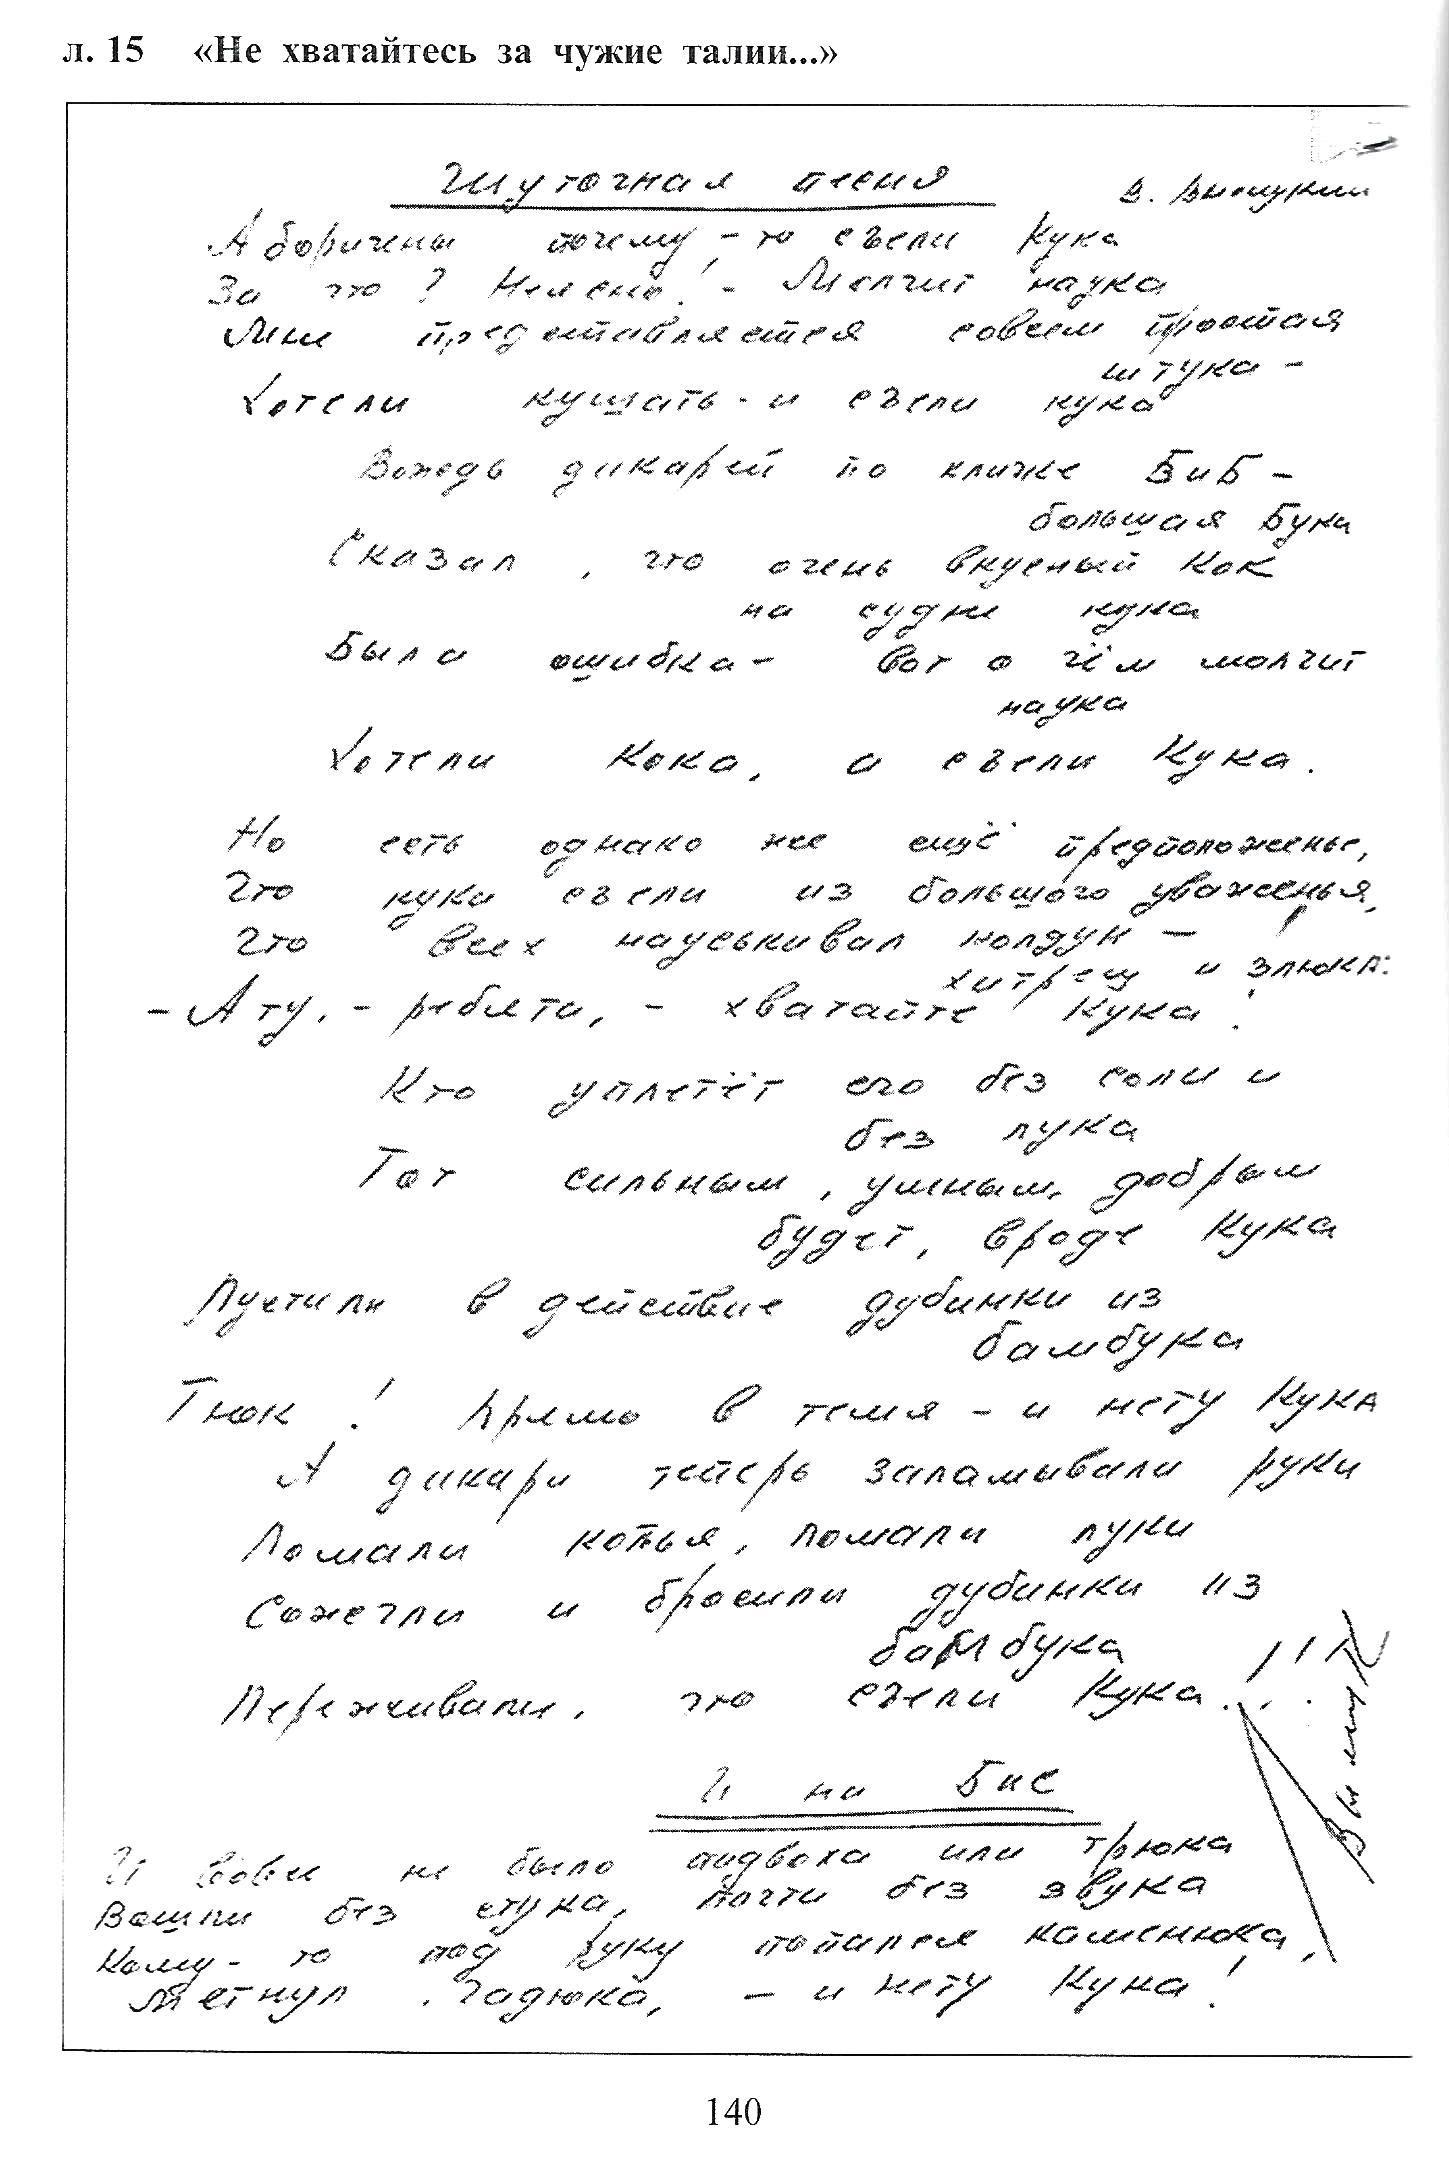 л. 15 «Не хватайтесь за чужие талии...»
Шуточная песня
В. Высоцкий
Аборигены почему-то съели Кука
За что? Неясно! - Молчит наука
Мне представляется совсем простая
штука -
Хотели кушать - и съели кука
Вождь дикарей по кличке БиБ -
большая Бука
Сказал, что очень вкусный Кок
на судне кука
Была ошибка - вот о чём молчит
наука
Хотели Кока, а съели Кука.
Но есть однако же ещё предположенье,
Что кука съели из большого уваженья,
Что всех науськивал колдун -
хитрец и злюка:
- Ату, - ребята, - хватайте Кука!
Кто уплетёт его без соли и
без лука
Тот сильным, умным, добрым
будет, вроде Кука
Пустили в действие дубинки из
бамбука
Тюк! Прямо в темя - и нету Кука
А дикари теперь заламывали руки
Ломали копья, ломали луки
Сожгли и бросили дубинки из
бамбука
Переживали, что съели Кука...
И на Бис
И вовсе не было подвоха или трюка
Вошли без стука, почти без звука
Кому-то под руку попался каменюка,
Метнул, гадюка, - и нету Кука!
140